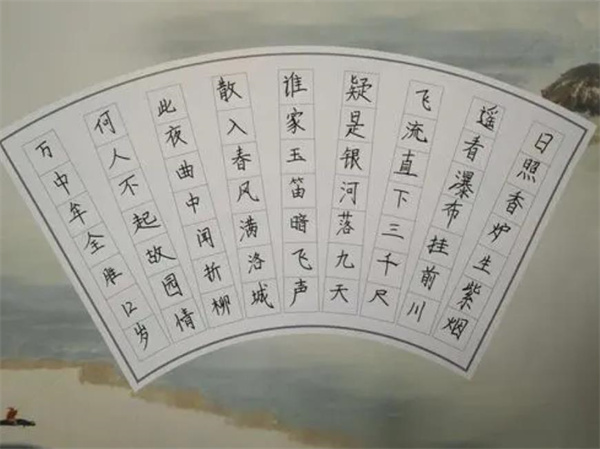 日照香炉生紫烟
遥看瀑布挂前川
飞流直下三千尺
疑是银河落九天
谁家玉笛暗飞声
散入春风满洛城
此夜曲中闻折柳
何人不起故园情
中牟全胜12岁